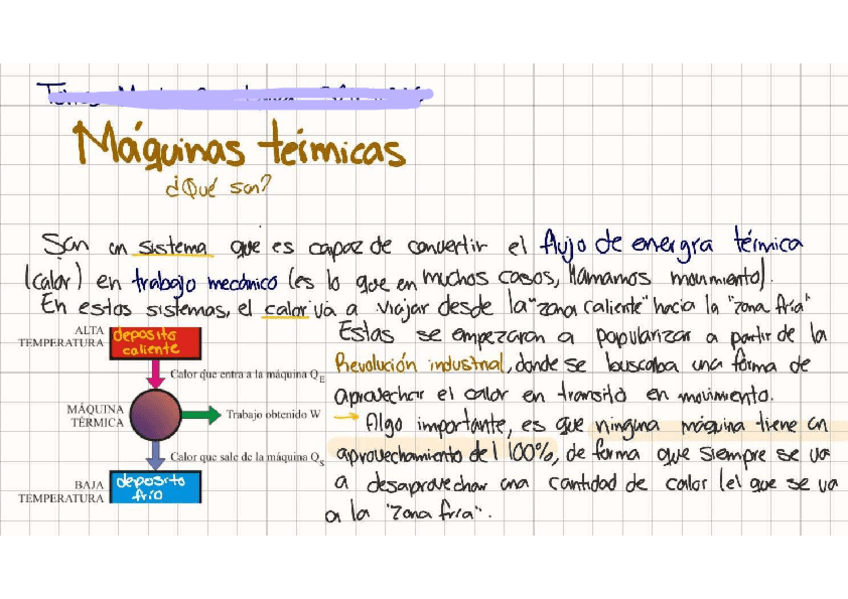 Máquinas térmicas
¿Qué son?
Son un sistema que es capaz de convertir el flujo de energía térmica
(calor) en trabajo mecánico (es lo que en muchos casos, llamamos movimiento).
En estos sistemas, el calor va a viajar desde la "zona caliente" hacia la "zona fría"
ALTA
TEMPERATURA
deposito
caliente
Calor que entra a la máquina QE
MÁQUINA
TÉRMICA
Trabajo obtenido W
Calor que sale de la máquina QS
BAJA
TEMPERATURA
deposito
frío
Estas se empezaron a popularizar a partir de la
Revolución industrial, donde se buscaba una forma de
aprovechar el calor en transito en movimiento.
→ Algo importante, es que ninguna máquina tiene un
aprovechamiento del 100%, de forma que siempre se va
a desaprovechar una cantidad de calor (el que se va
a la "zona fría".